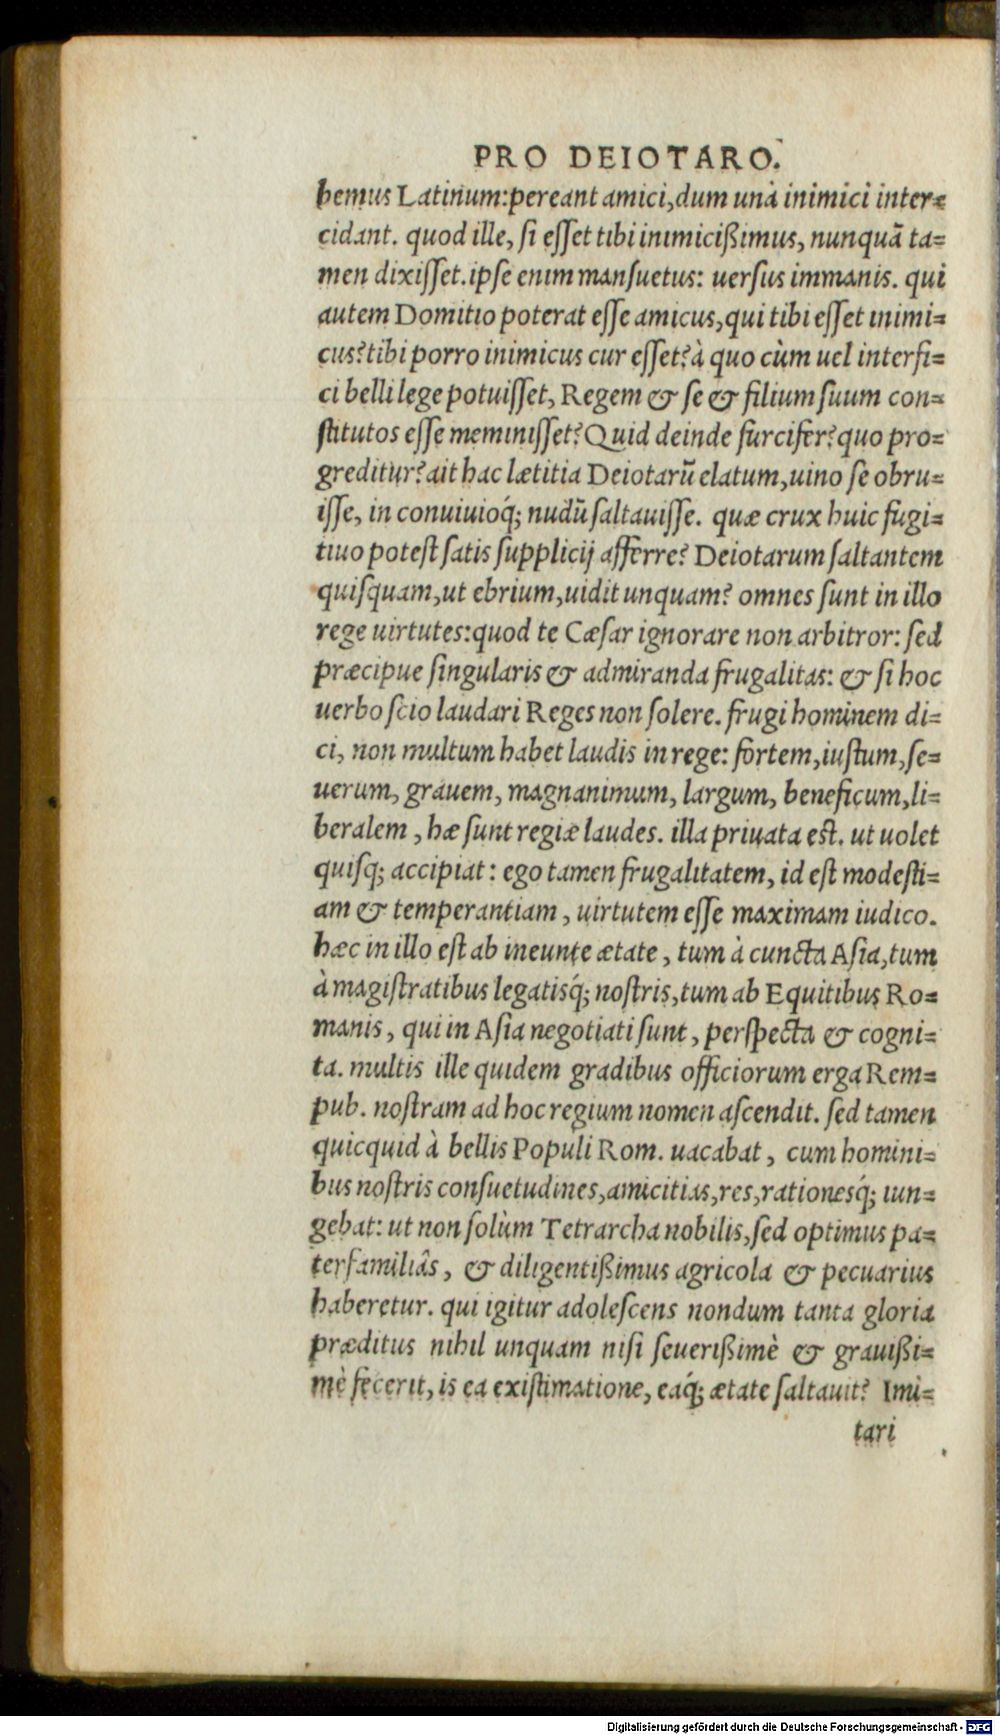 PRO DEIOTARO.
bemus Latinum:pereant amici,dum unà inimici inter=
cidant. quod ille, ſi eſſet tibi inimicißimus, nunquã ta=
men dixiſſet.ipſe enim manſuetus: uerſus immanis. qui
autem Domitio poterat eſſe amicus,qui tibi eſſet inimi=
cus?tibi porro inimicus cur eſſet?à quo cùm uel interfi=
ci belli lege potuiſſet, Regem & ſe & filium ſuum con=
ſtitutos eſſe meminiſſet?Quid deinde furcifer?quo pro=
greditur?ait hac lætitia Deiotarũ elatum,uino ſe obru=
iſſe, in conuiuioq́; nudũ ſaltauiſſe. quæ crux huic fugi=
tiuo poteſt ſatis ſupplicij afferre? Deiotarum ſaltantem
quiſquam,ut ebrium,uidit unquam? omnes ſunt in illo
rege uirtutes:quod te Cæſar ignorare non arbitror: ſed
præcipue ſingularis & admiranda frugalitas: & ſi hoc
uerbo ſcio laudari Reges non ſolere. frugi hominem di=
ci, non multum habet laudis in rege: fortem,iuſtum,ſe=
uerum, grauem, magnanimum, largum, beneficum,li=
beralem, hæ ſunt regiæ laudes. illa priuata eſt. ut uolet
quiſq; accipiat: ego tamen frugalitatem, id eſt modeſti=
am & temperantiam, uirtutem eſſe maximam iudico.
hæc in illo eſt ab ineunte ætate, tum à cuncta Aſia,tum
à magiſtratibus legatisq́; noſtris,tum ab Equitibus Ro=
manis, qui in Aſia negotiati ſunt, perſpecta & cogni=
ta. multis ille quidem gradibus officiorum erga Rem=
pub. noſtram ad hoc regium nomen aſcendit. ſed tamen
quicquid à bellis Populi Rom. uacabat, cum homini=
bus noſtris conſuetudines,amicitias,res,rationesq́; iun=
gebat: ut non ſolùm Tetrarcha nobilis,ſed optimus pa=
terfamiliâs, & diligentißimus agricola & pecuarius
haberetur. qui igitur adoleſcens nondum tanta gloria
præditus nihil unquam niſi ſeuerißimè & grauißi=
mè fecerit, is ea exiſtimatione, eaq́; ætate ſaltauit? Imi=
tari
Digitalisierung gefördert durch die Deutsche Forschungsgemeinschaft - DFG